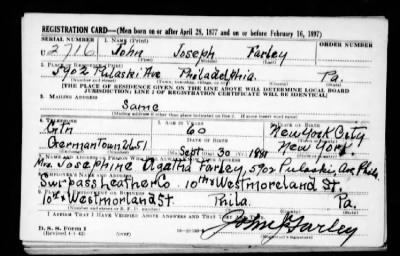 REGISTRATION CARD—(Men born on or after April 28, 1877 and on or before February 16, 1897)
SERIAL NUMBER 1. NAME (Print)
U 2716 John Joseph Farley
(First) (Middle) (Last)
2. PLACE OF RESIDENCE (Print)
5902 Pulaski Ave Philadelphia. Pa.
[THE PLACE OF RESIDENCE GIVEN ON THE LINE ABOVE WILL DETERMINE LOCAL BOARD
JURISDICTION; LINE 2 OF REGISTRATION CERTIFICATE WILL BE IDENTICAL]
3. MAILING ADDRESS
Same
[Mailing address if other than place indicated on line 2. If same insert word same]
4. TELEPHONE 5. AGE IN YEARS 6. PLACE OF BIRTH
Gtn 60 New York City
DATE OF BIRTH
GermanTown 2651 Sept. 30 1881 New York.
7. NAME AND ADDRESS OF PERSON WHO WILL ALWAYS KNOW YOUR ADDRESS
Mrs. Josephine Agatha Farley, 5902 Pulaski, Ave Phila
8. EMPLOYER'S NAME AND ADDRESS
Surpass Leather Co. 10th & Westmoreland St.
9. PLACE OF EMPLOYMENT OR BUSINESS
10th & Westmorland St. Phila. Pa.
I AFFIRM THAT I HAVE VERIFIED ABOVE ANSWERS AND THAT THEY ARE TRUE.
D. S. S. Form 1
(Revised 4-1-42)
John J Farley